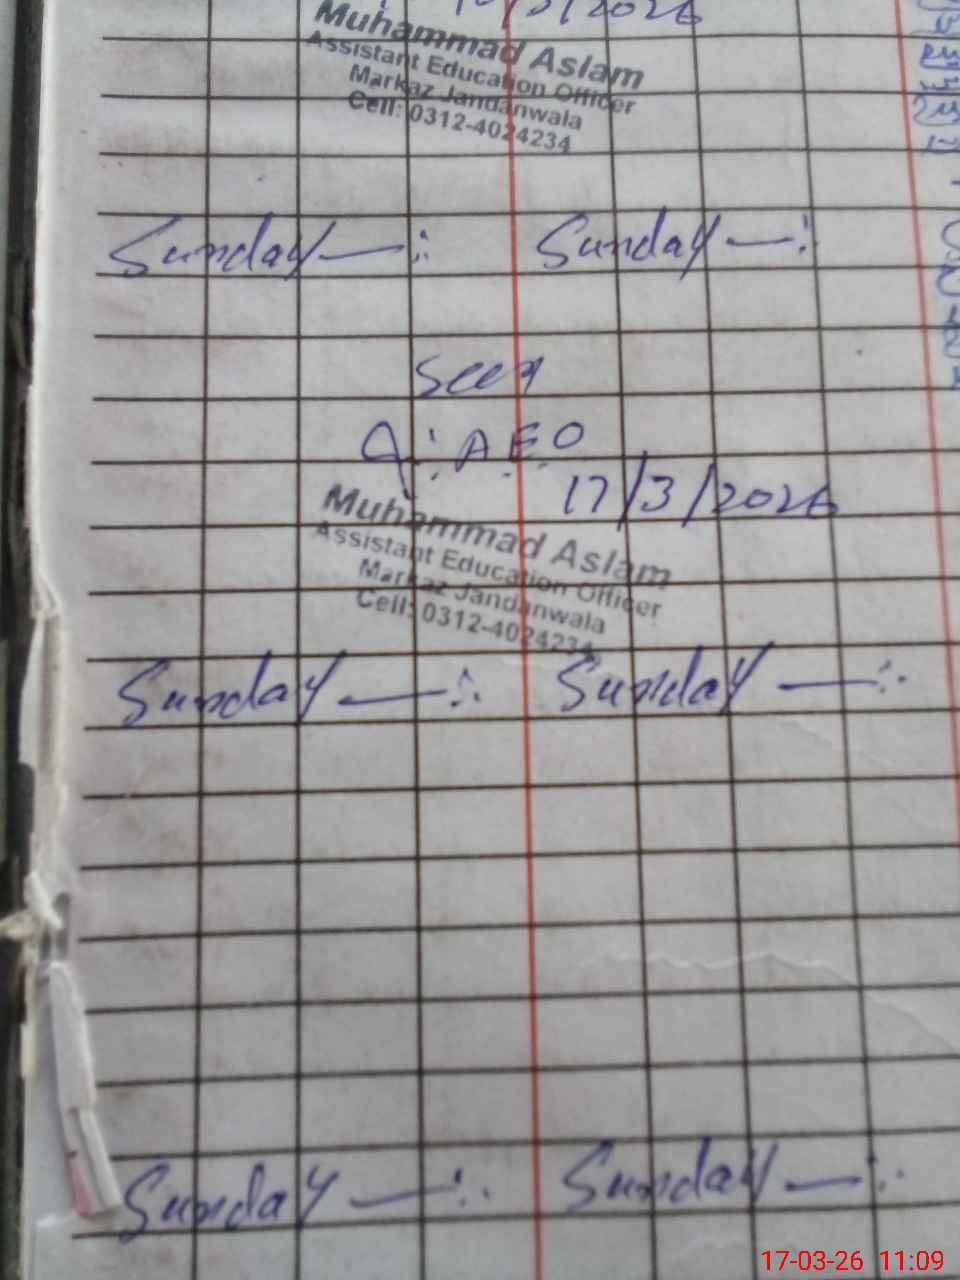 /2026
Muhammad Aslam
Assistant Education Officer
Markaz Jandanwala
Cell: 0312-4024234
Sunday —∴ Sunday —∴
Seen
A.E.O
17/3/2026
Muhammad Aslam
Assistant Education Officer
Markaz Jandanwala
Cell: 0312-4024234
Sunday —∴ Sunday —∴
Sunday —∴ Sunday —∴
17-03-26 11:09